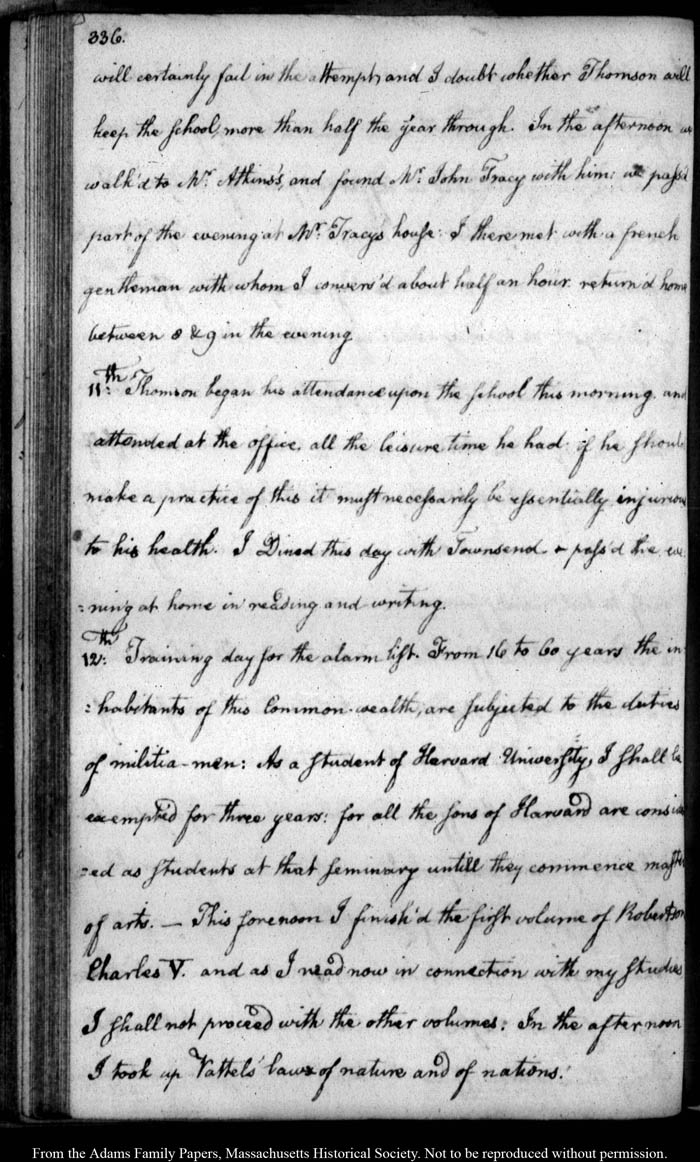 336.
will certainly fail in the attempt, and I doubt whether Thomson will
keep the school, more than half the year through. In the afternoon we
walk'd to Mr. Atkins's, and found Mr. John Tracy with him: we pass'd
part of the evening at Mr. Tracys house: I there met with a french
gentleman with whom I convers'd about half an hour. return'd home
between 8 & 9 in the evening
11th: Thomson began his attendance upon the school this morning. and
attended at the office, all the leisure time he had: if he should
make a practice of this it must necessarily be essentially injurious
to his health. I Dined this day with Townsend & pass'd the eve
=ning at home in reading and writing.
12th: Training day for the alarm list. From 16 to 60 years the in
=habitants of this Common-wealth, are subjected to the duties
of militia-men: As a student of Harvard University, I shall be
exempted for three years: for all the sons of Harvard are consider
=ed as students at that seminary untill they commence master
of arts. — This forenoon I finish'd the first volume of Robertson
Charles V. and as I read now in connection with my studies
I shall not proceed with the other volumes: In the afternoon
I took up Vattels' laws of nature and of nations.
From the Adams Family Papers, Massachusetts Historical Society. Not to be reproduced without permission.